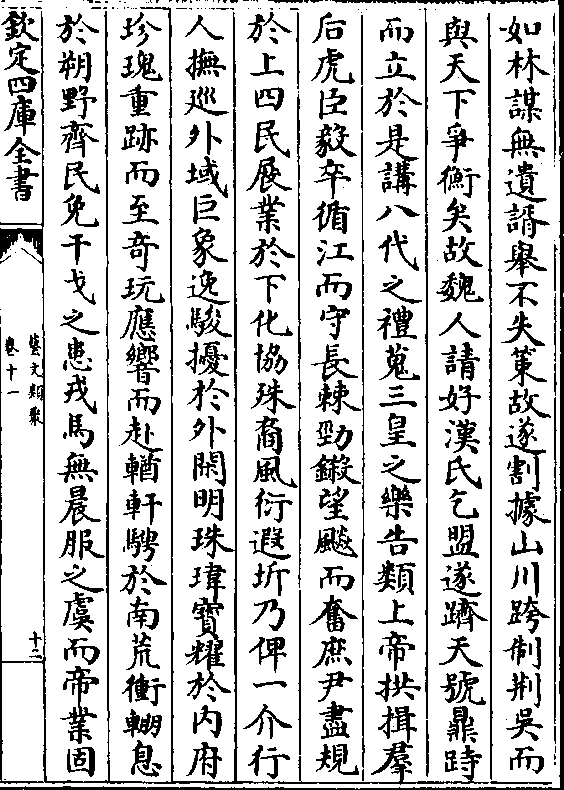 如林謀無遺諝舉不失策故遂割據山川跨制荆吳而
與天下爭衡矣故魏人請好漢氏乞盟遂躋天號鼎跱
而立於是講八代之禮蒐三皇之樂告類上帝拱揖羣
后虎臣毅卒循江而守長棘勁鎩望飈而奮庶尹盡規
於上四民展業於下化協殊裔風衍遐圻乃俾一介行
人撫巡外域巨象逸駿擾於外閑明珠瑋寶耀於内府
珍瑰重跡而至奇玩應響而赴輶軒騁於南荒衝輣息
於朔野齊民免干戈之患戎馬無晨服之虞而帝業固
欽定四庫全書
藝文類聚
卷十一
十二